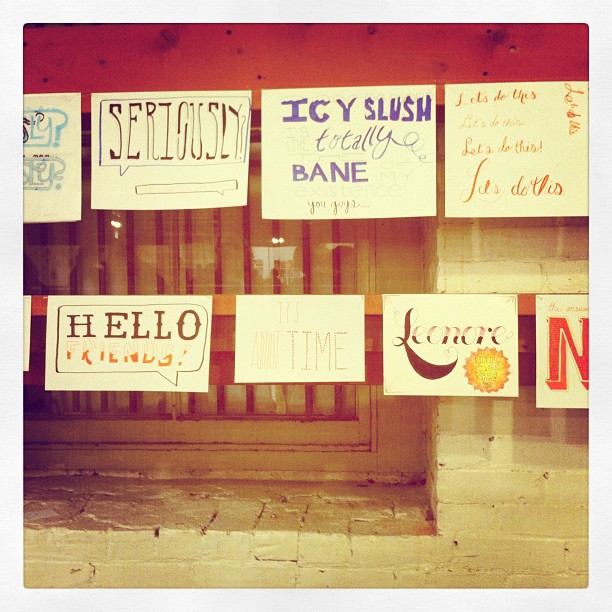 LY?
SERIOUSLY?
ICY SLUSH
IS
THE totally
BANE OF MY
existence
you guys...
Let's do this.
Let's do this.
Let's do this!
Let's do this
HELLO
FRIENDS!
IT'S
ABOUT TIME
Leonore
N